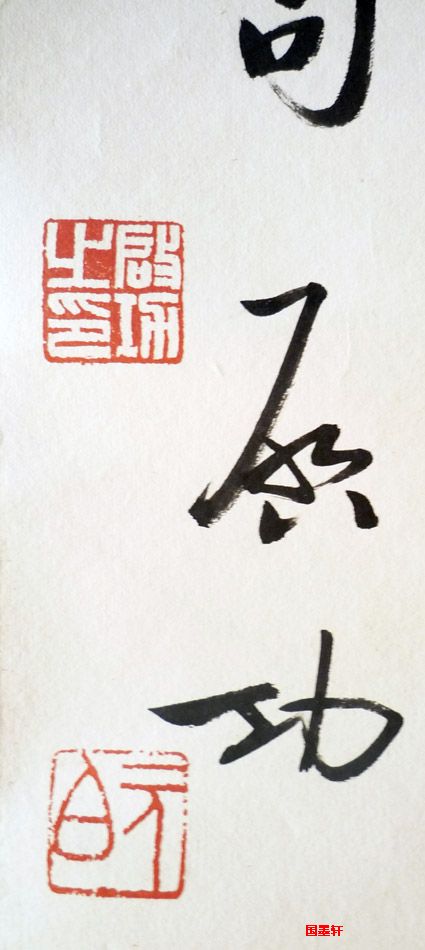 启功
啓功之印
元白
国墨轩